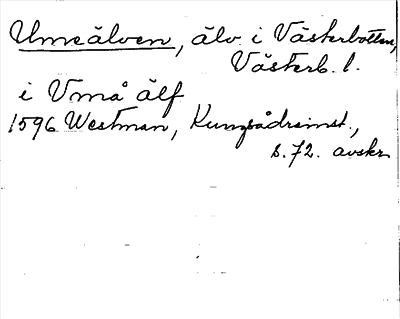 Umeälven, älv i Västerbotten,
Västerb. l.
i Vmå älf
1596 Westman, Kungsådreinst.,
s. 72. avskr.